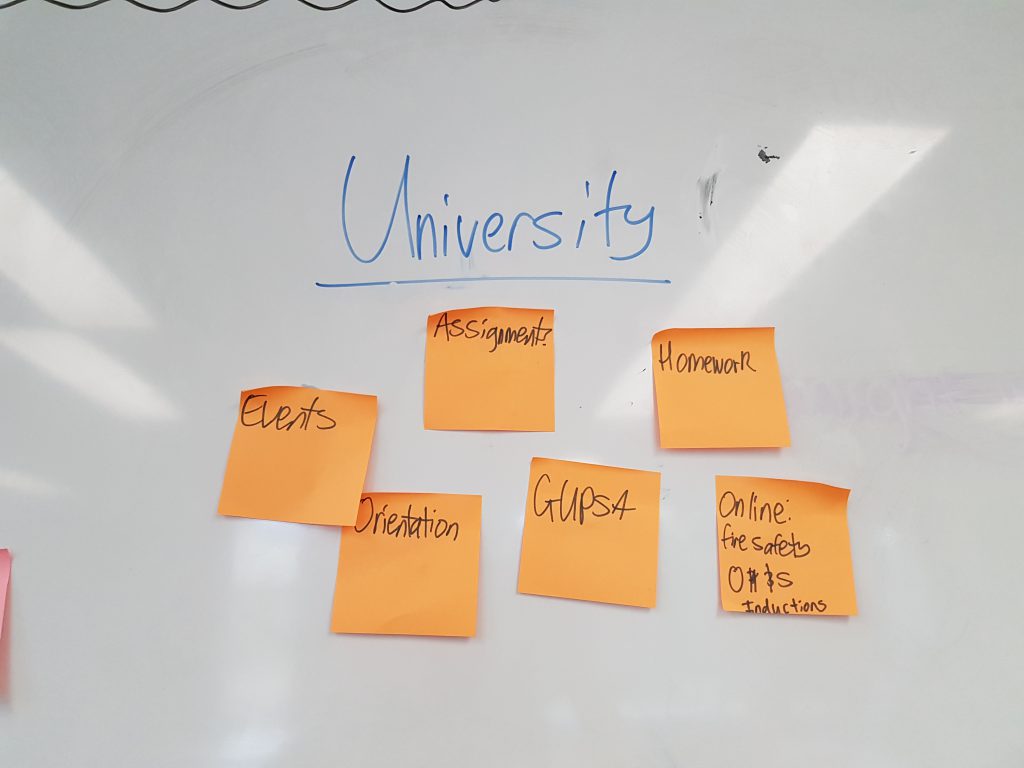 University
Assignments
Homework
Events
Orientation
GUPSA
Online:
fire safety
OH&S
Inductions